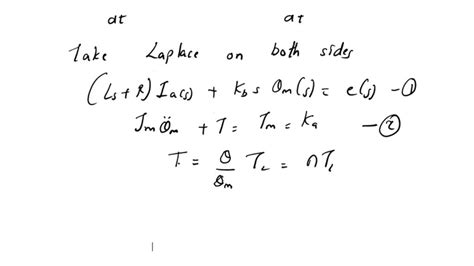 dt dt
Take Laplace on both sides
(Ls + R) Ia(s) + Kb s θm(s) = e(s) - ①
Jm θ̈m + T = Tm = Ka - ②
T = θ/θm TL = nTL